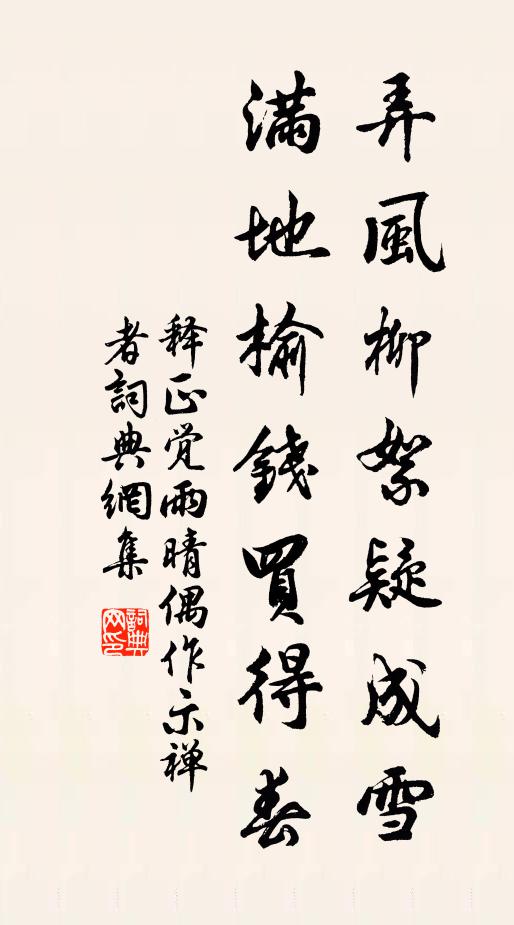 弄風柳絮疑成雪
滿地榆錢買得春
释正觉雨晴偶作示禅
者詞典網集
詞典網印